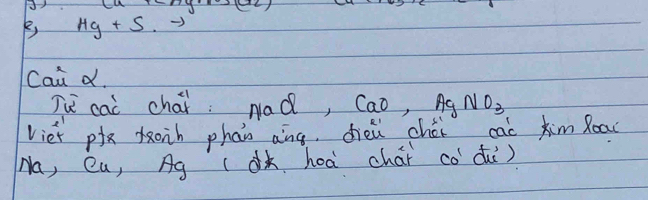 Hg + S. →
Câu 2.
Từ các chất : NaCl , CaO , AgNO3
Viết ptr trình phản ứng. điều chế các kim loại
Na, Cu, Ag ( đk hoá chất có đủ )